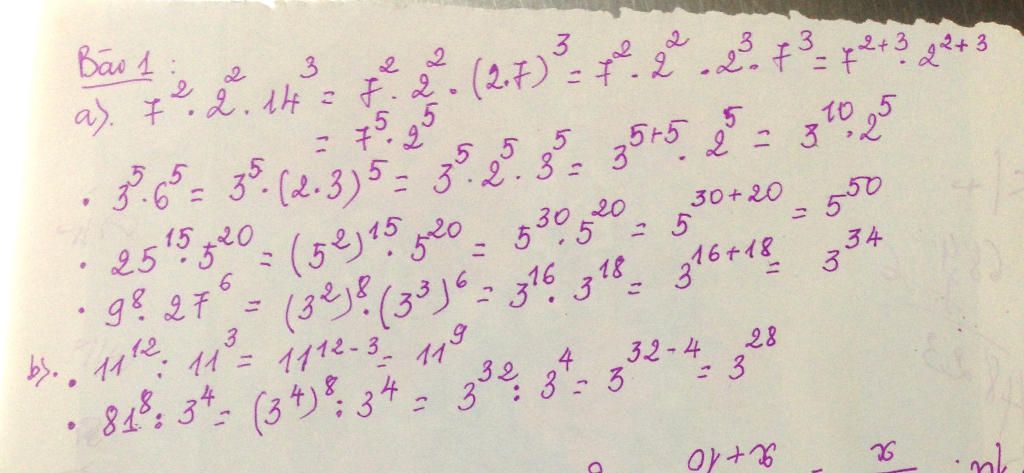 Bào 1 :
a). 7² · 2² · 14³ = 7² · 2² · (2.7)³ = 7² · 2² · 2³ · 7³ = 7²⁺³ · 2²⁺³
= 7⁵ · 2⁵
· 3⁵ · 6⁵ = 3⁵ · (2 · 3)⁵ = 3⁵ · 2⁵ · 3⁵ = 3⁵⁺⁵ · 2⁵ = 3¹⁰ · 2⁵
· 25¹⁵ · 5²⁰ = (5²)¹⁵ · 5²⁰ = 5³⁰ · 5²⁰ = 5³⁰⁺²⁰ = 5⁵⁰
· 9⁸ · 27⁶ = (3²)⁸ · (3³)⁶ = 3¹⁶ · 3¹⁸ = 3¹⁶⁺¹⁸ = 3³⁴
b). · 11¹² : 11³ = 11¹²⁻³ = 11⁹
· 81⁸ : 3⁴ = (3⁴)⁸ : 3⁴ = 3³² : 3⁴ = 3³²⁻⁴ = 3²⁸